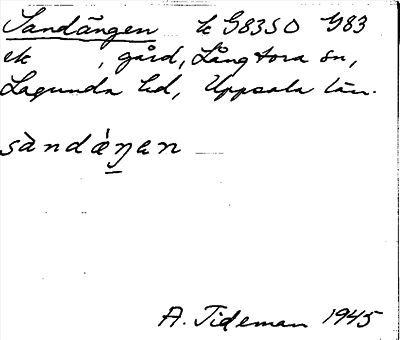 Sandängen k G83SO G83
ek , gård, Långtora sn,
Lagunda hd, Uppsala län.
sàndæ̀ŋen
A. Tideman 1945